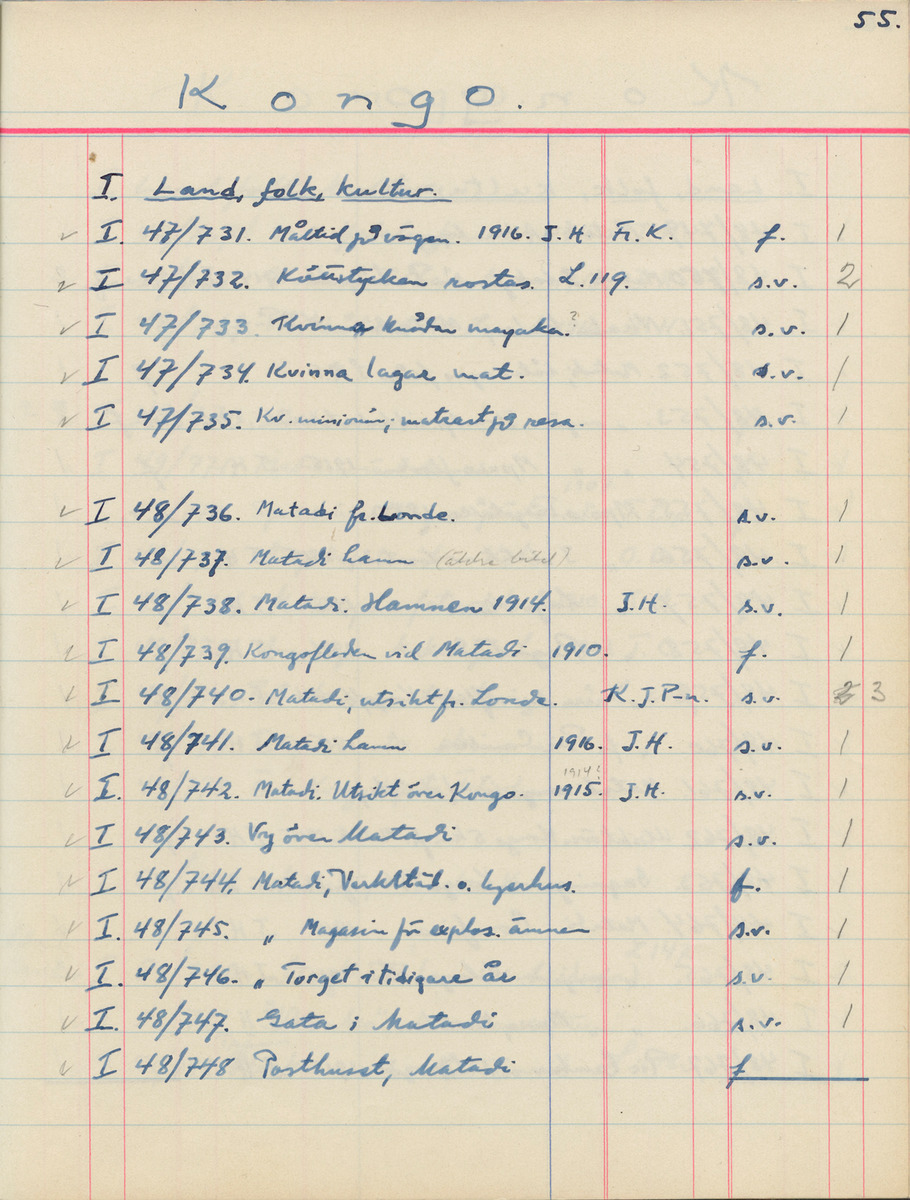 55.
Kongo.
I. Land, folk, kultur.
I. 47/731. Måltid på vägen. 1916. J.H. Fr. K. f. 1
I 47/732. Köttstycken rostas. L.119. s.v. 2
I 47/733. Kvinna knådar mayaka.? s.v. 1
I 47/734. Kvinna lagar mat. s.v. 1
I 47/735. Kv. missionär; matrast på resa. s.v. 1
I 48/736. Matadi fr. Londe. s.v. 1
I 48/737. Matadi hamn (äldre bild? s.v. 1
I 48/738. Matadi. Hamnen 1914. J.H. s.v. 1
I 48/739. Kongofloden vid Matadi 1910. f. 1
I 48/740. Matadi, utsikt fr. Londe. K.J.P-n. s.v. 3
I 48/741. Matadi hamn 1916. J.H. s.v. 1
1914?
I. 48/742. Matadi. Utsikt över Kongo. 1915. J.H. s.v. 1
I 48/743. Vy över Matadi s.v. 1
I 48/744. Matadi, Verkstäd. o. hyrhus. f. 1
I. 48/745. " Magasin för explos. ämnen s.v. 1
I. 48/746. " Torget i tidigare år s.v. 1
I. 48/747. Gata i Matadi s.v. 1
I 48/748 Posthuset, Matadi f